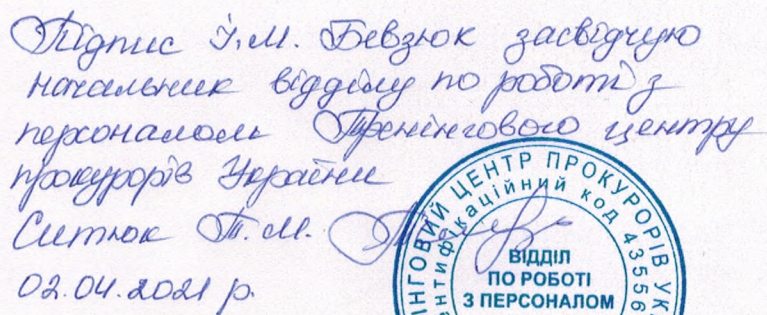 Підпис І.М. Бевзюк засвідчую
начальник відділу по роботі з
персоналом Тренінгового центру
прокурорів України
Ситюк Т.М.
02.04.2021 р.
ІНГОВИЙ ЦЕНТР ПРОКУРОРІВ УК
ентифікаційний код 43556
ВІДДІЛ
ПО РОБОТІ
З ПЕРСОНАЛОМ